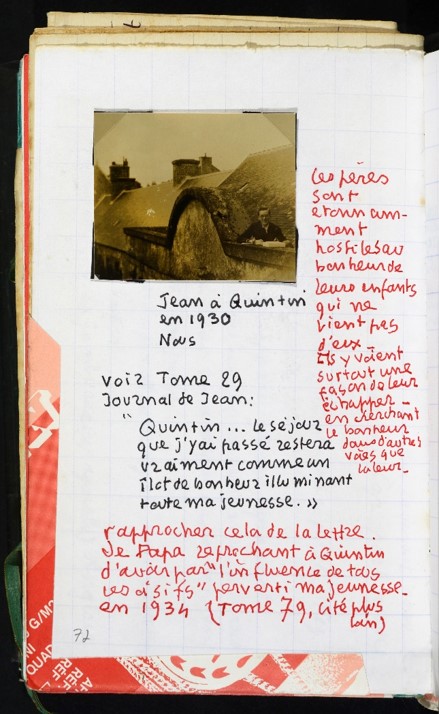 Jean à Quintin
en 1930
Nous
voir Tome 29
Journal de Jean:
"Quintin... le séjour
que j'y ai passé restera
vraiment comme un
îlot de bonheur illuminant
toute ma jeunesse. »
Les pères
sont
etonnam-
ment
hostiles au
bonheur de
leurs enfants
qui ne
vient pas
d'eux -
Ils y voient
surtout une
façon de leur
échapper -
en cherchant
le bonheur
dans d'autres
voies que
la leur -
rapprocher cela de la lettre
de Papa reprochant à Quintin
d'avoir par "l'influence de tous
ces oisifs" perverti ma jeunesse -
en 1934 (Tome 79, cité plus
loin)
72